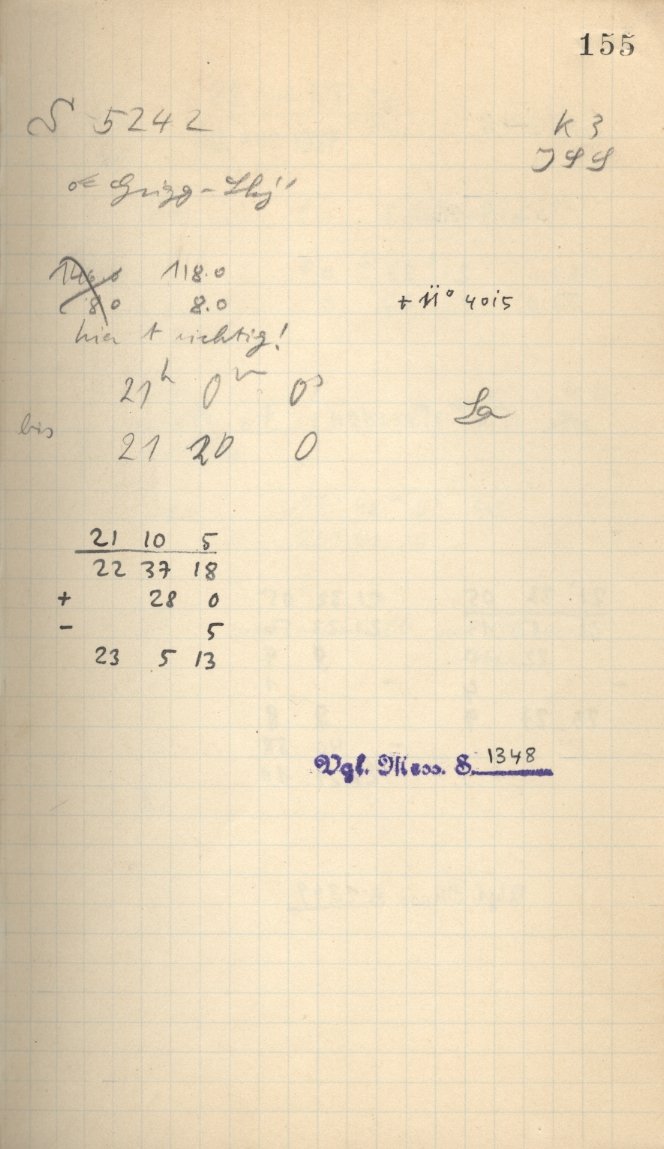 155
S 5242
K 3
☄ Grigg-Skj"
146.0 118.0
8 0 8.0
+ 11° 40!5
hier t richtig!
21h 0m 0s
La
bis 21 20 0
21 10 5
22 37 18
+ 28 0
- 5
23 5 13
Vgl. Mess. S. 1348